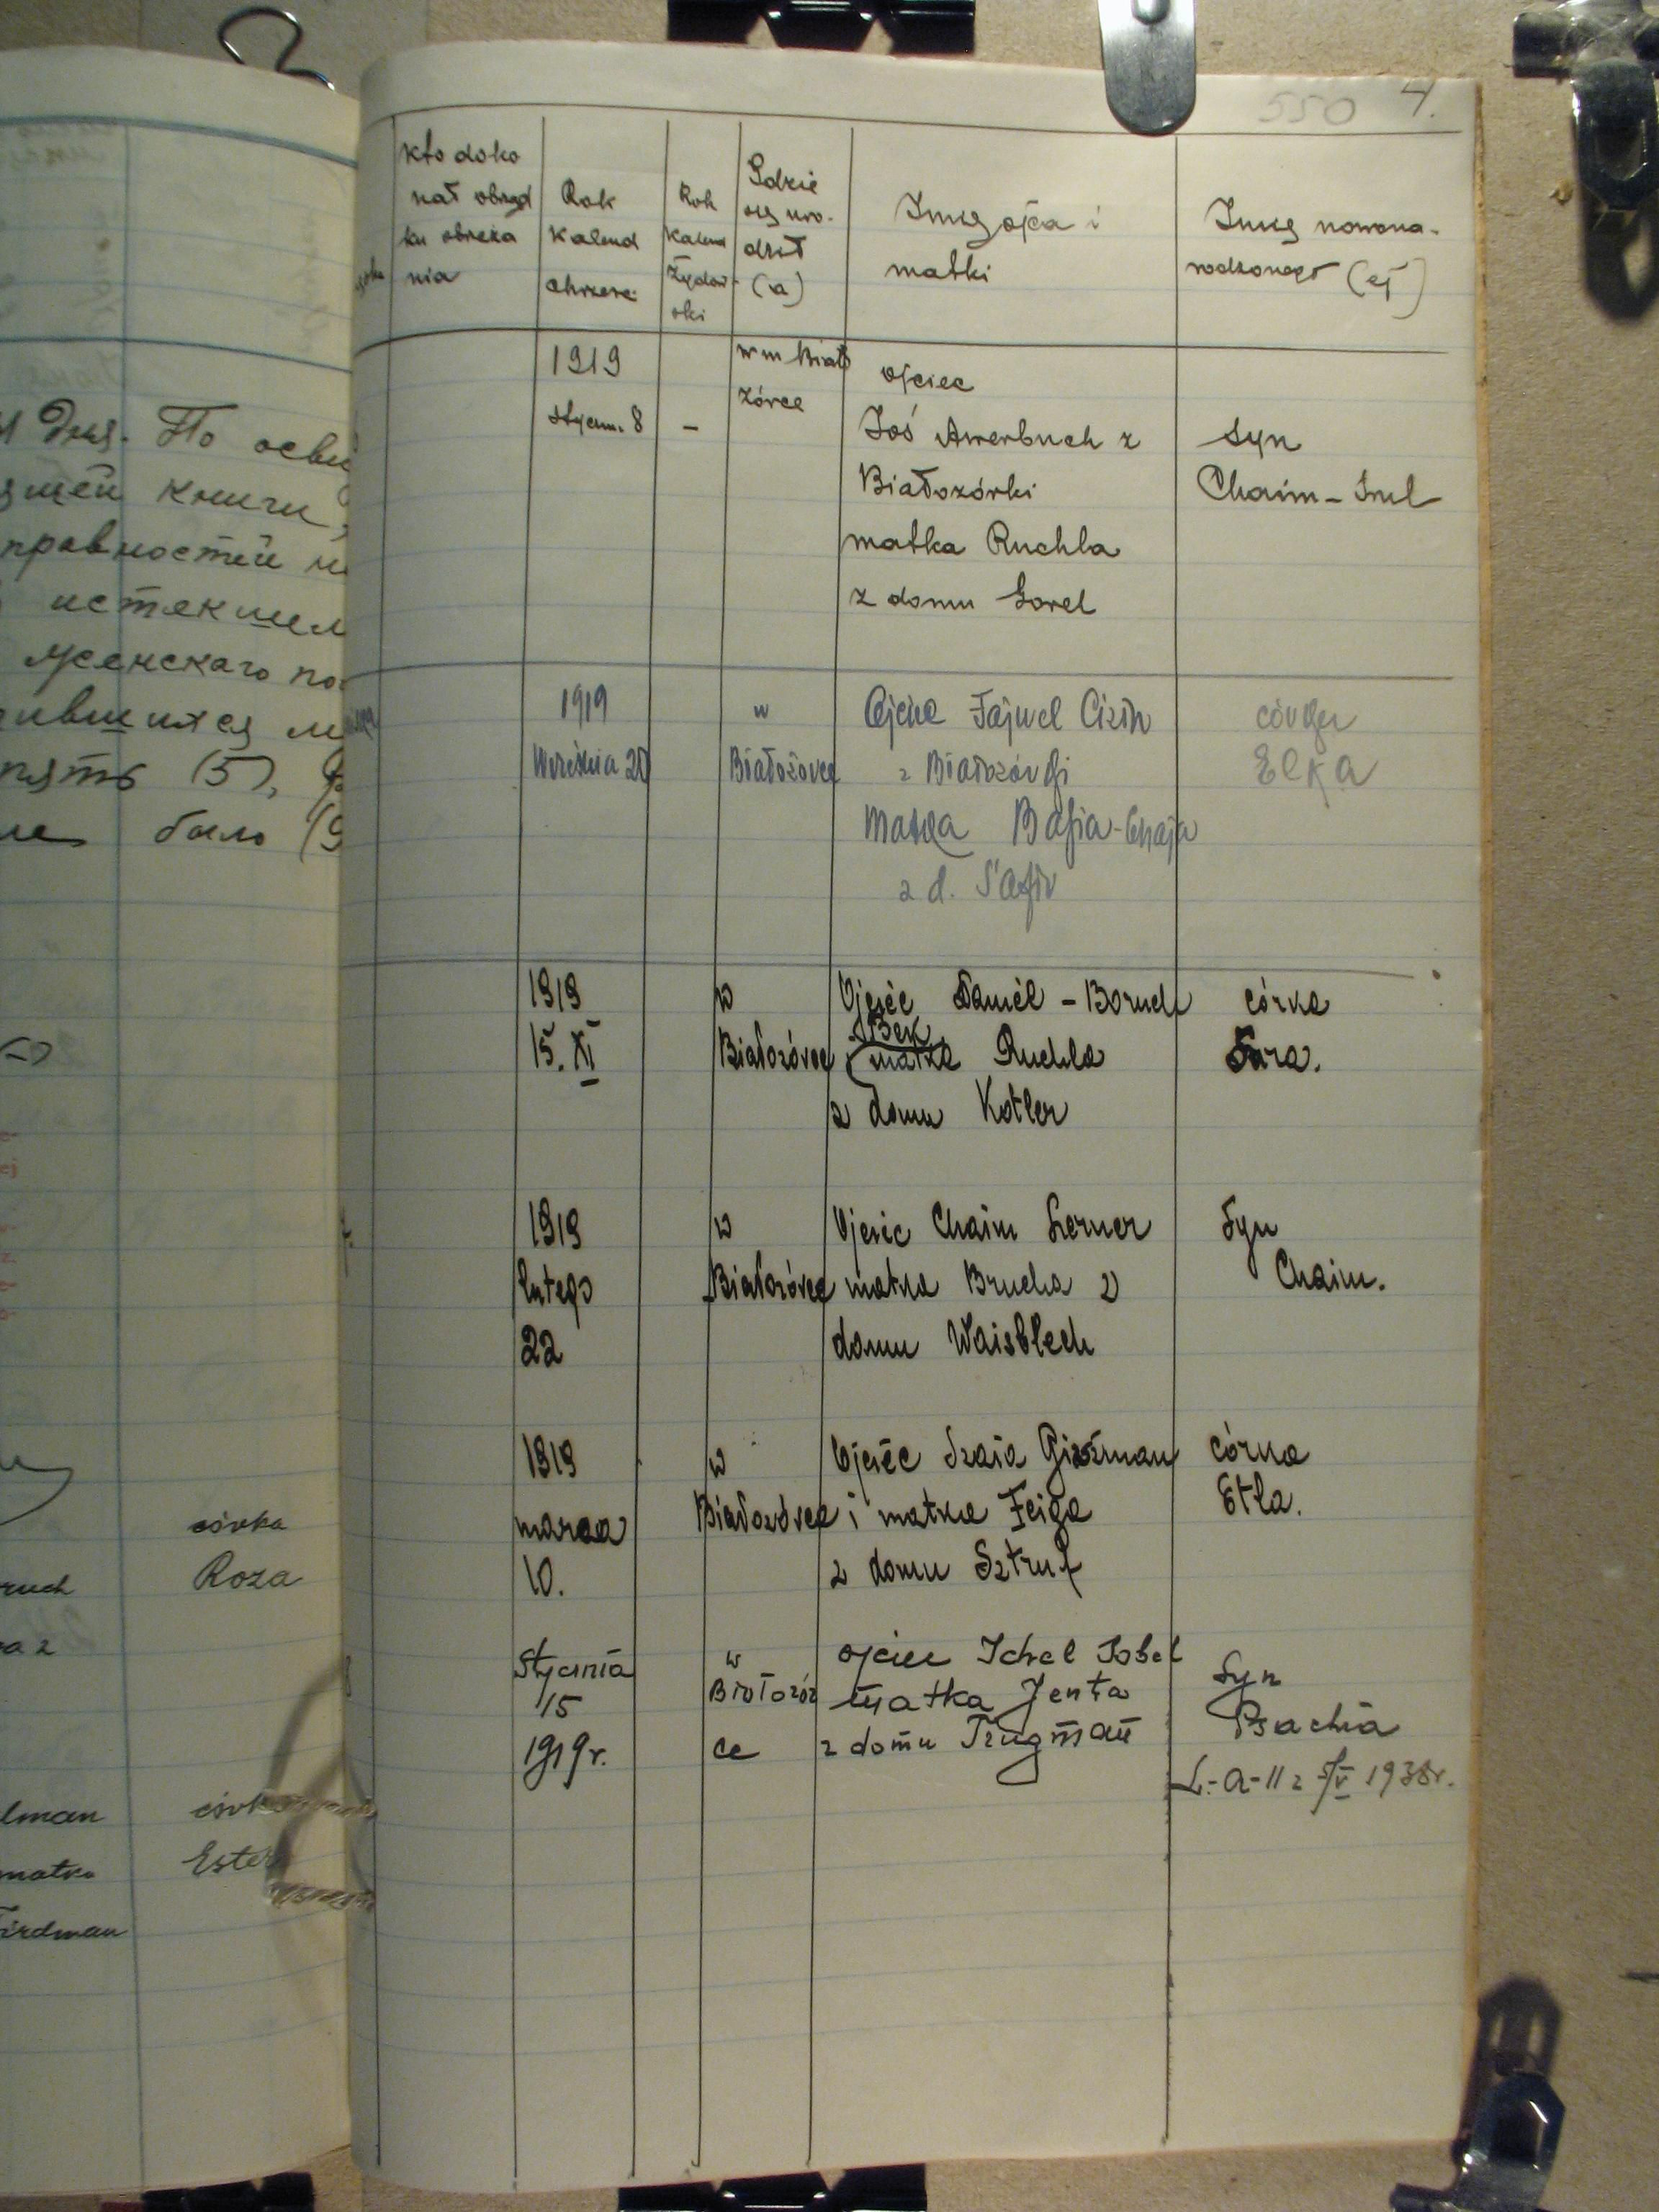 550 4.
Kto doko
nał obrząd
ku obrzeza
nia
Rok
Kalend
chrześc
Rok
Kalend
Żydow-
ski
Gdzie
się uro-
dził
(a)
Imię ojca i
matki
Imię nowona-
rodzonego (ej)
1919
styczn. 8
-
w m Biało
zórce
ojciec
Joś Awerbuch z
Białozórki
matka Ruchla
z domu Gorel
syn
Chaim - Srul
1919
Września 20
w
Białozórce
Ojciec Fajwel Cizin
z Białozórki
Matka Basia-Chaja
z d.
córka
Elka
1919
15. XI
w
Białozórce
Ojciec Daniel - Boruch
Bek
matka Ruchla
z domu Kotler
córka
Sara.
1919
lutego
22
w
Białozórce
Ojciec Chaim Lerner
matka Brucha z
domu Waisblech
Syn
Chaim.
1919
marca
10.
w
Białozórce
Ojciec Szaia Giszman
i matka Feiga
z domu Sztruf
córka
Etla.
Stycznia
15
1919 r.
w
Białozór
ce
ojciec Ichel Sobel
matka Jenta
z domu Trugman
Syn
Psachia
L.-a-11 z 5/V 1938r.
дня. По осви
ящей книги,
правностей н
истекшем
менскаго по
пять (5),
было (9
córka
ruch Roza
a z
lman córka
matka Ester
irdman